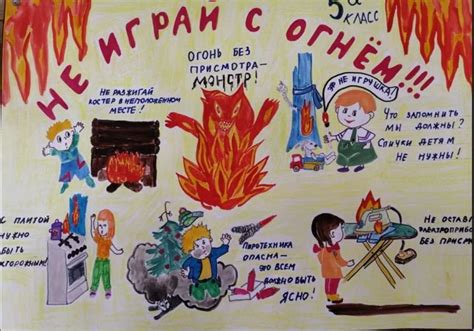 5а
КЛАСС
НЕ ИГРАЙ С ОГНЁМ!!!
ОГОНЬ БЕЗ
ПРИСМОТРА-
МОНСТР!
НЕ РАЗЖИГАЙ
КОСТЕР В НЕПОЛОЖЕННОМ
МЕСТЕ!
НЕ ИГРУШКА!
ЧТО ЗАПОМНИТЬ
МЫ ДОЛЖНЫ?
СПИЧКИ ДЕТЯМ
НЕ НУЖНЫ!
С ПЛИТОЙ
НУЖНО
БЫТЬ
ПИРОТЕХНИКА
ОПАСНА-
ЭТО ВСЕМ
ДОЛЖНО БЫТЬ
ЯСНО!
НЕ ОСТАВ
ЭЛЕКТРОПРИБО
БЕЗ ПРИСМ